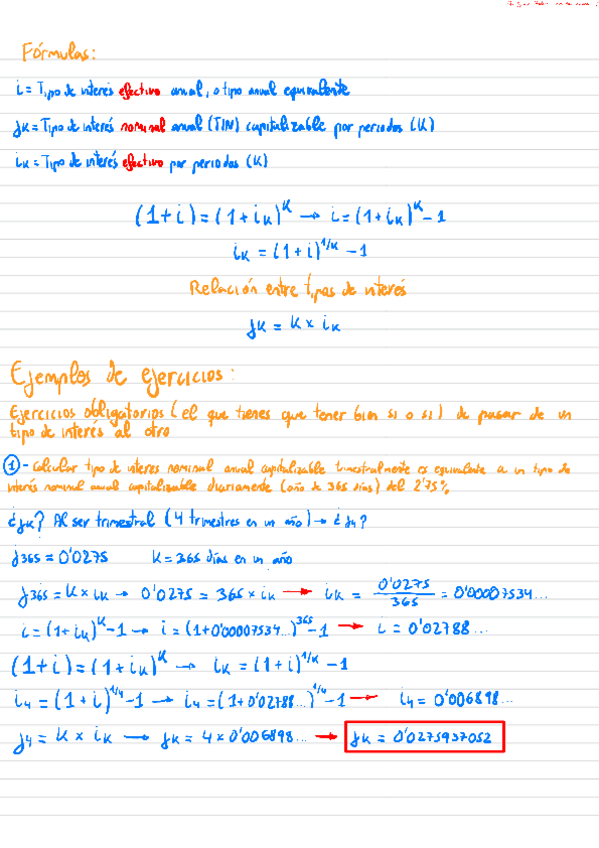 Fórmulas:
i = Tipo de interés efectivo anual, o tipo anual equivalente
jk = Tipo de interés nominal anual (TIN) capitalizable por periodos (K)
ik = Tipo de interés efectivo por periodos (K)
(1+i) = (1+ik)^K → i = (1+ik)^K - 1
ik = (1+i)^1/K - 1
Relación entre tipos de interés
jk = K x ik
Ejemplos de ejercicios:
Ejercicios obligatorios (el que tienes que tener bien si o si) de pasar de un
tipo de interés al otro
① - Calcular tipo de interes nominal anual capitalizable trimestralmente es equivalente a un tipo de
interés nominal anual capitalizable diariamente (año de 365 días) del 2'75%.
¿jk? Al ser trimestral (4 trimestres en un año) → ¿j4?
j365 = 0'0275 K = 365 días en un año
j365 = K x ik → 0'0275 = 365 x ik → ik = 0'0275/365 = 0'00007534...
i = (1+ik)^K - 1 → i = (1+0'00007534...)^365 - 1 → i = 0'02788...
(1+i) = (1+ik)^K → ik = (1+i)^1/K - 1
i4 = (1+i)^1/4 - 1 → i4 = (1+0'02788...)^1/4 - 1 → i4 = 0'006898...
j4 = K x ik → jk = 4 x 0'006898... → jk = 0'0275937052